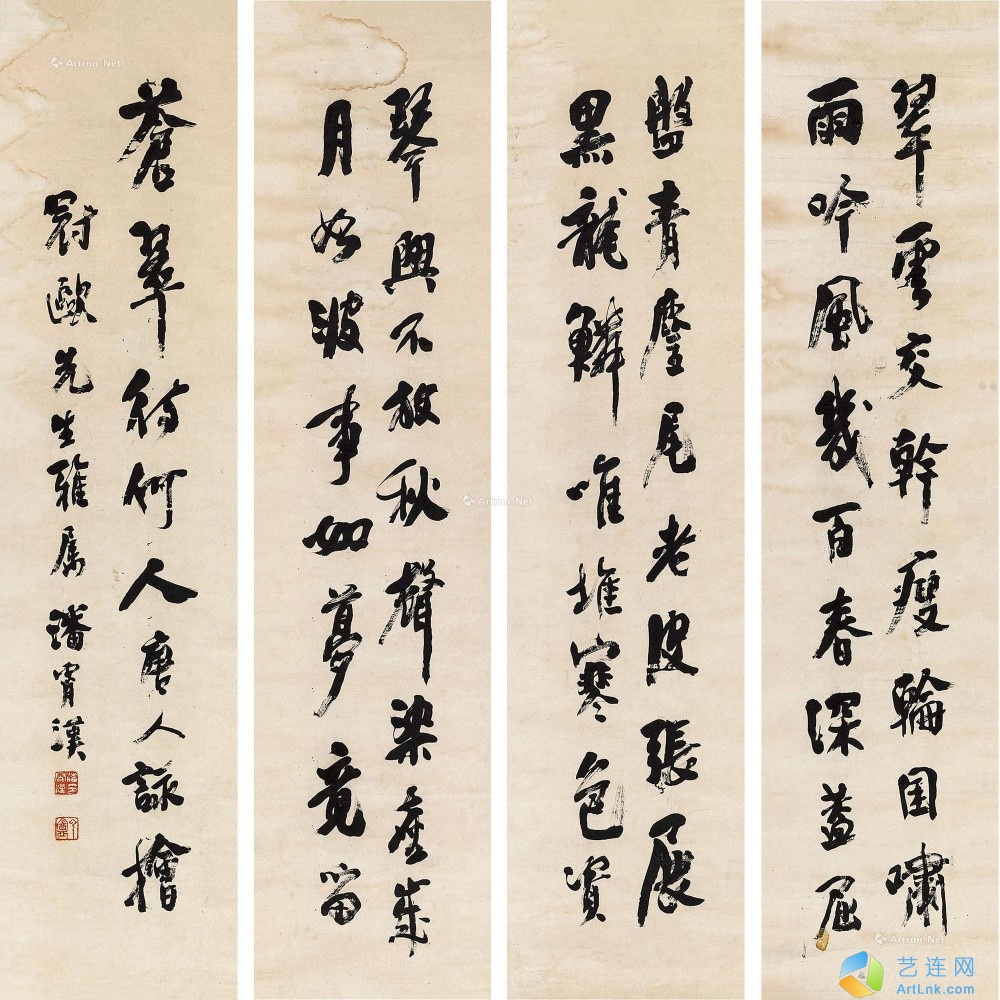 翠雲交幹瘦輪囷嘯
雨吟風幾百春深蓋屈
盤青麈尾老皮張展
黑龍鱗唯堆寒色資
琴興不放秋聲染塵歲
月如波事如夢竟留
蒼翠待何人唐人詠檜
冠歐先生雅屬 潘霄漢
Artron.Net
Artron.Net
Artron.Net
艺连网
ArtLnk.com